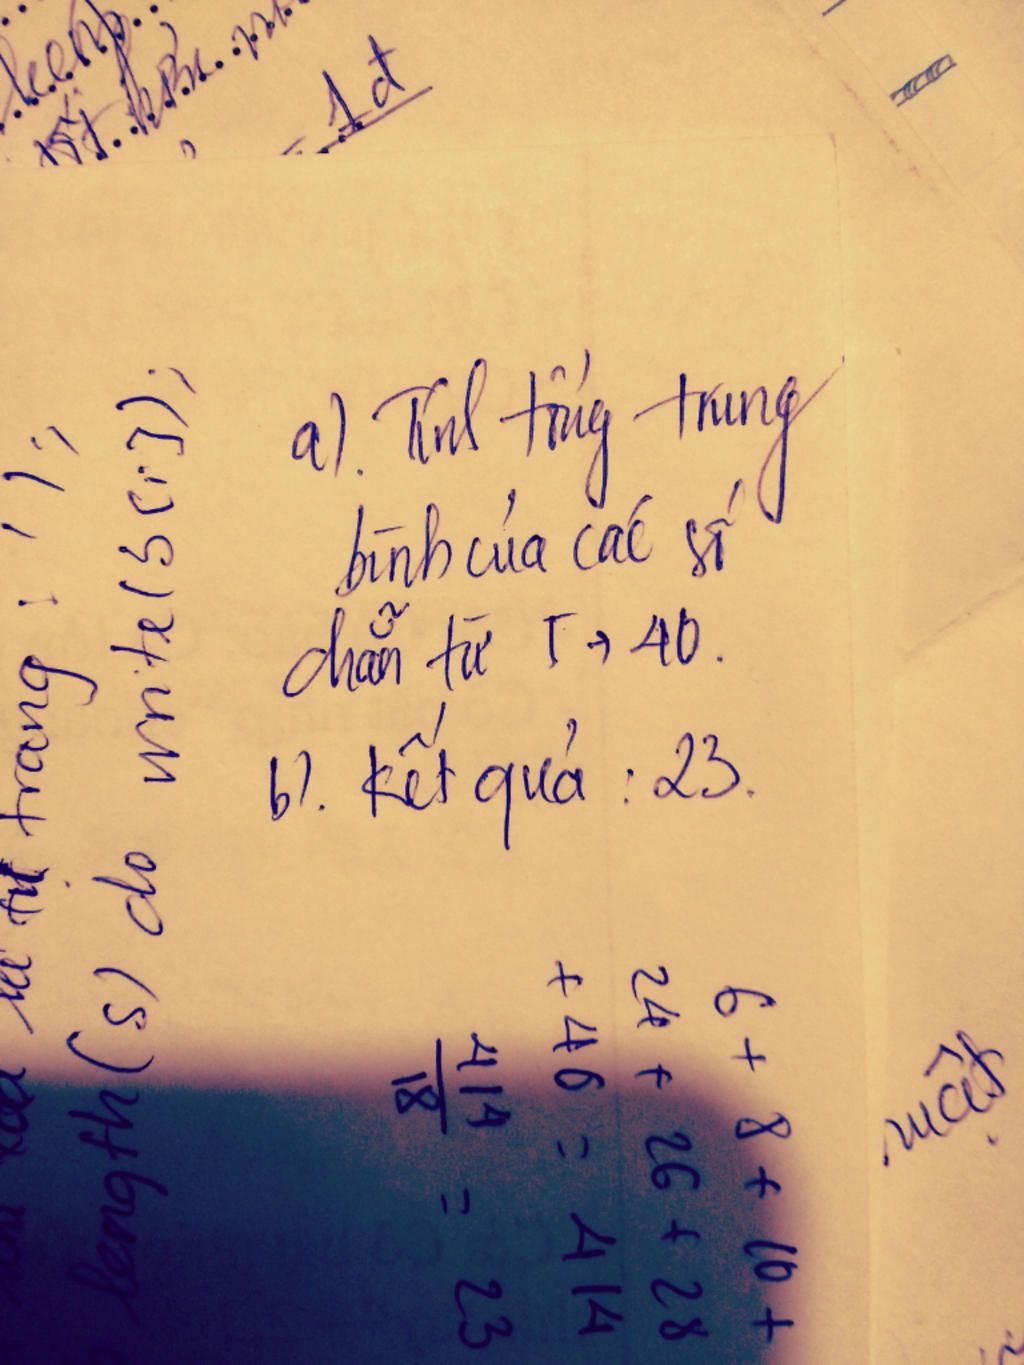 1đ
a). Tính tổng trung
bình của các số
chẵn từ 5 → 40.
b). Kết quả : 23.
6 + 8 + 10 +
24 + 26 + 28
+ 40 = 414
414
18
= 23
từ trang : ' );
length(s) do write(s[i]);
một